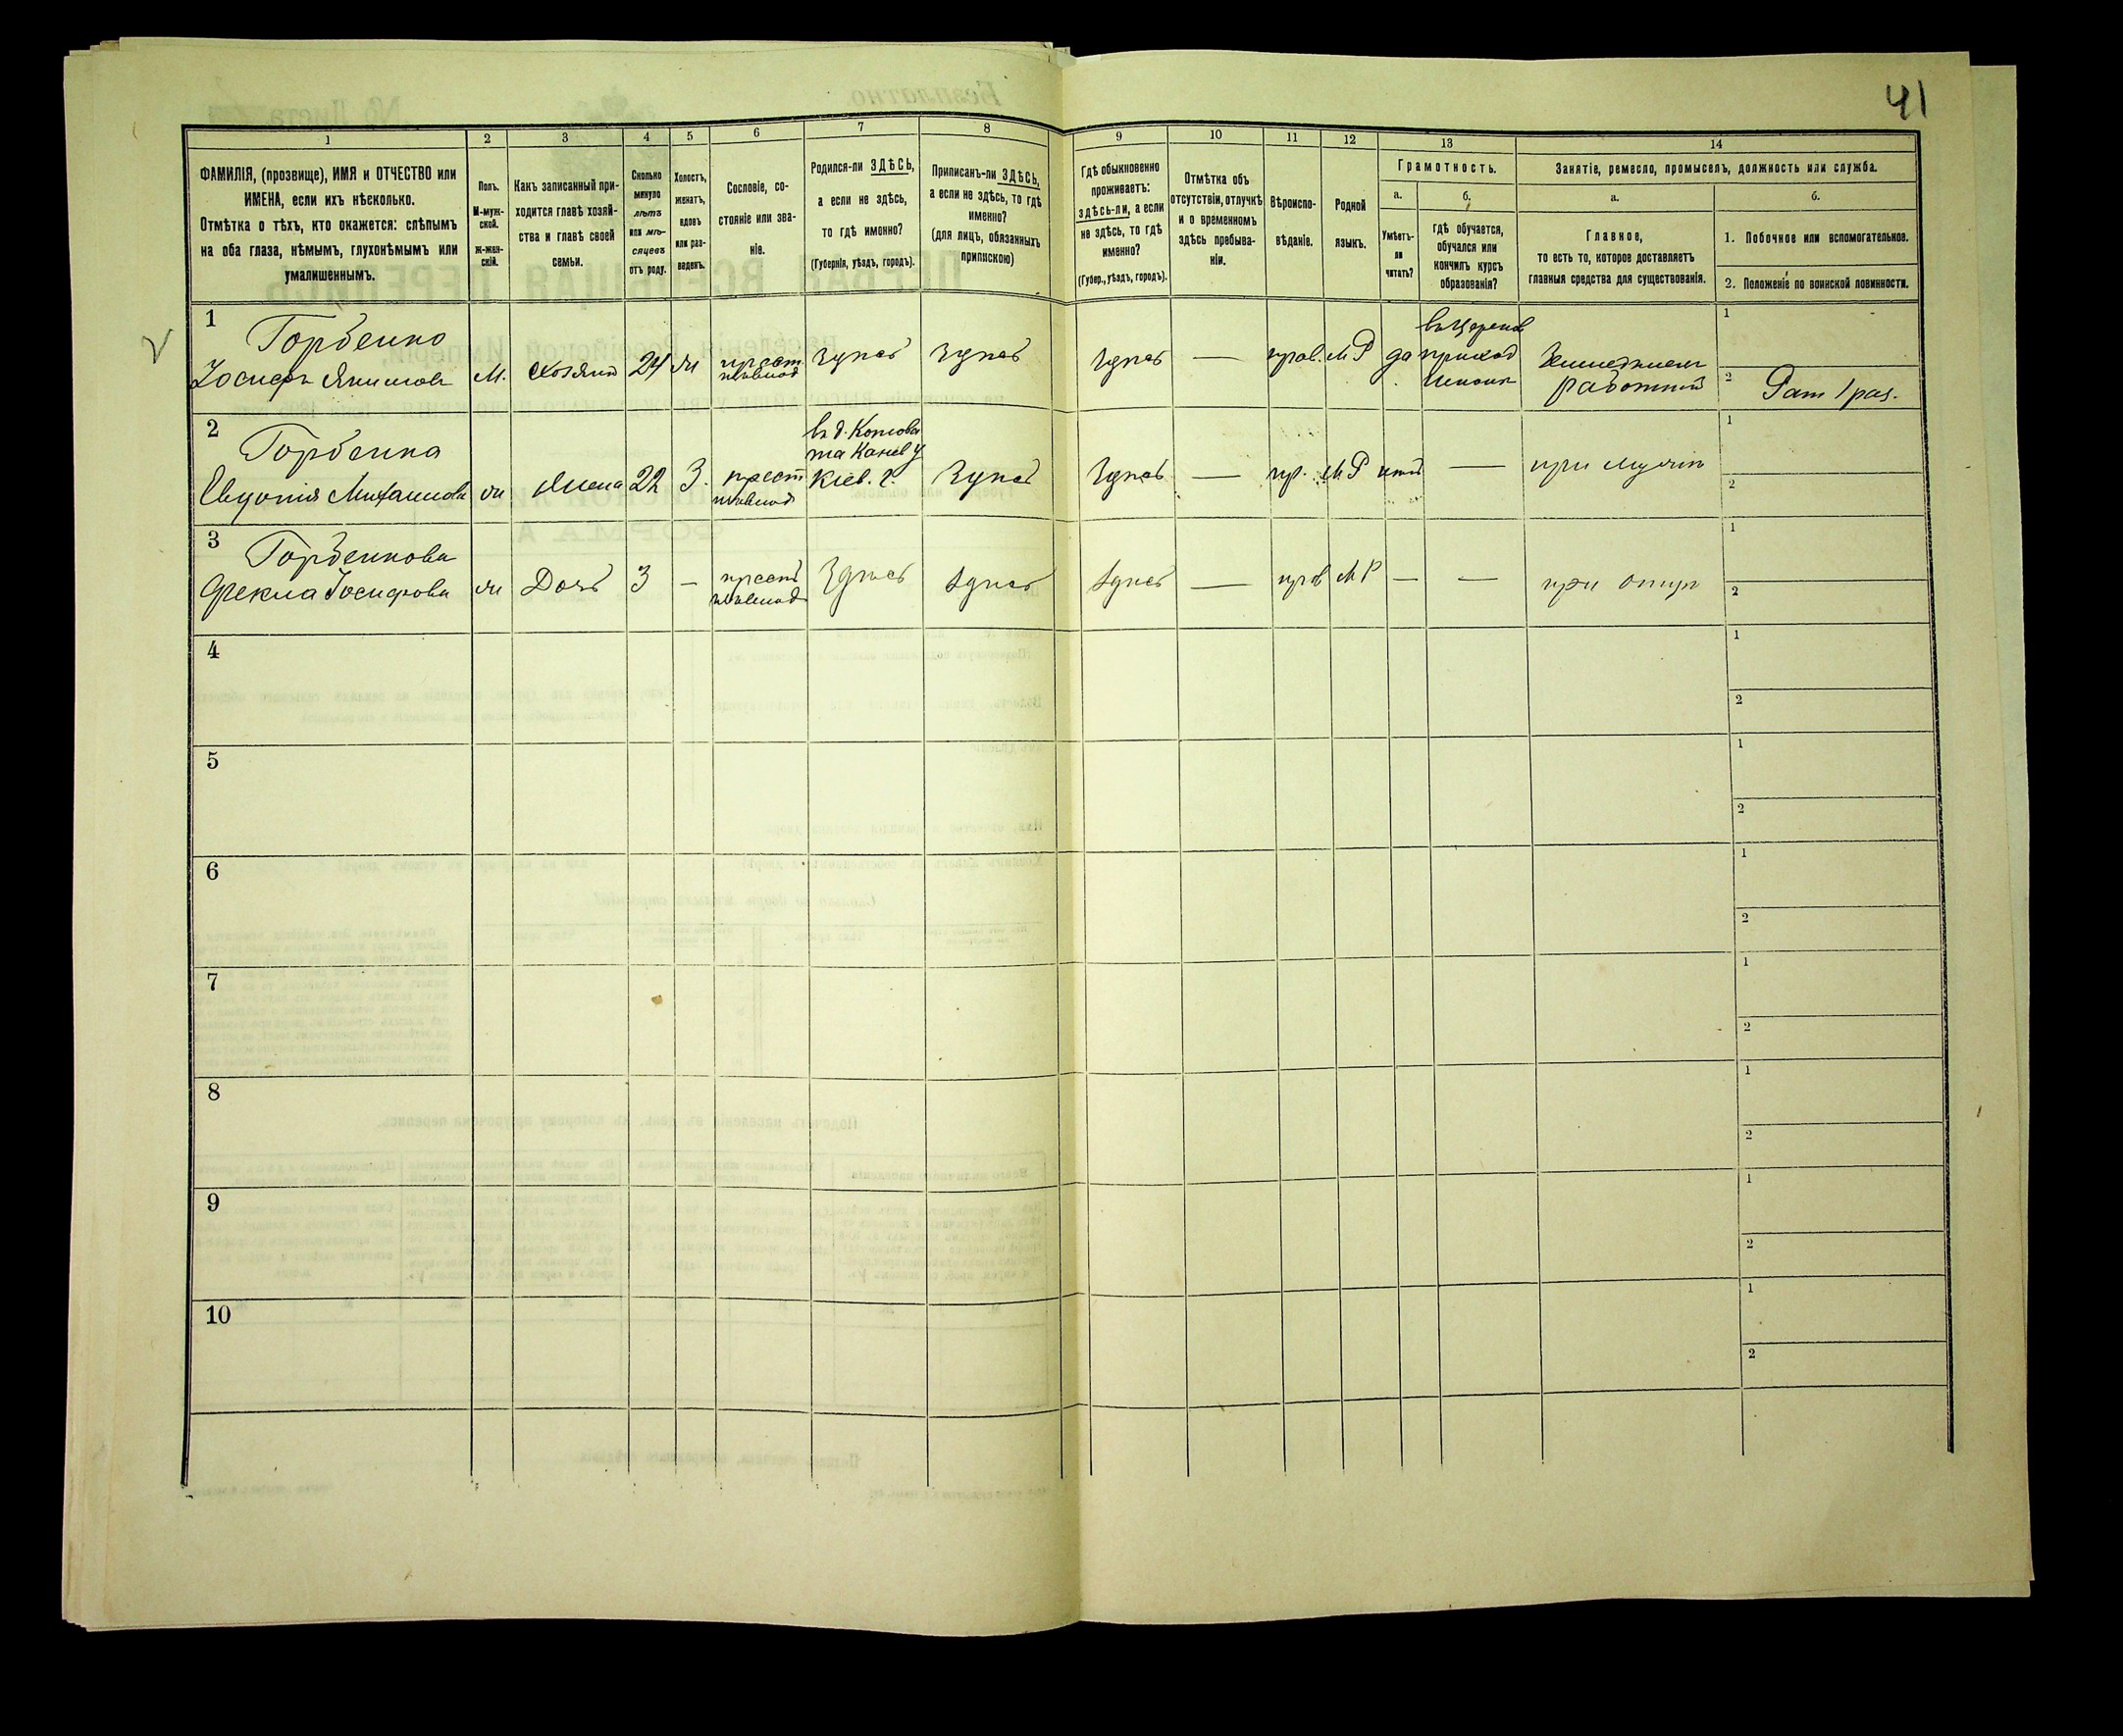 41
1 2 3 4 5 6 7 8 9 10 11 12 13 14
ФАМИЛІЯ, (прозвище), ИМЯ и ОТЧЕСТВО или
ИМЕНА, если ихъ нѣсколько.
Отмѣтка о тѣхъ, кто окажется: слѣпымъ
на оба глаза, нѣмымъ, глухонѣмымъ или
умалишеннымъ.
Полъ.
М-муж-
ской.
ж-жен-
скій.
Какъ записанный при-
ходится главѣ хозяй-
ства и главѣ своей
семьи.
Сколько
минуло
лѣтъ
или мѣ-
сяцевъ
отъ роду.
Холостъ,
женатъ,
вдовъ
или раз-
веденъ.
Сословіе, со-
стояніе или зва-
ніе.
Родился-ли ЗДѢСЬ,
а если не здѣсь,
то гдѣ именно?
(Губернія, уѣздъ, городъ).
Приписанъ-ли ЗДѢСЬ,
а если не здѣсь, то гдѣ
именно?
(для лицъ, обязанныхъ
припискою)
Гдѣ обыкновенно
проживаетъ:
здѣсь-ли, а если
не здѣсь, то гдѣ
именно?
(Губер., уѣздъ, городъ).
Отмѣтка объ
отсутствіи, отлучкѣ
и о временномъ
здѣсь пребыва-
ніи.
Вѣроиспо-
вѣданіе.
Родной
языкъ.
Грамотность.
а.
Умѣетъ-
ли
читать?
б.
Гдѣ обучается,
обучался или
кончилъ курсъ
образованія?
Занятіе, ремесло, промыселъ, должность или служба.
а.
Главное,
то есть то, которое доставляетъ
главныя средства для существованія.
б.
1. Побочное или вспомогательное.
2. Положеніе по воинской повинности.
1
Горбенко
Іосифъ Якимовъ
М. хозяинъ 24 ж крест. Здѣсь Здѣсь Здѣсь — прав. МР да
приход
работникъ
1
2 Рат 1 раз.
2
Горбенка
Евдокія Михаилова
ж Жена 22 З. крест
Кіев. г. Здѣсь Здѣсь — пр. МР нѣтъ — при мужѣ
1
2
3
Горбенкова
Фекла Іосифова
ж Дочь 3 — крест Здѣсь Здѣсь Здѣсь — прав МР — — при отцѣ
1
2
4
1
2
5
1
2
6
1
2
7
1
2
8
1
2
9
1
2
10
1
2